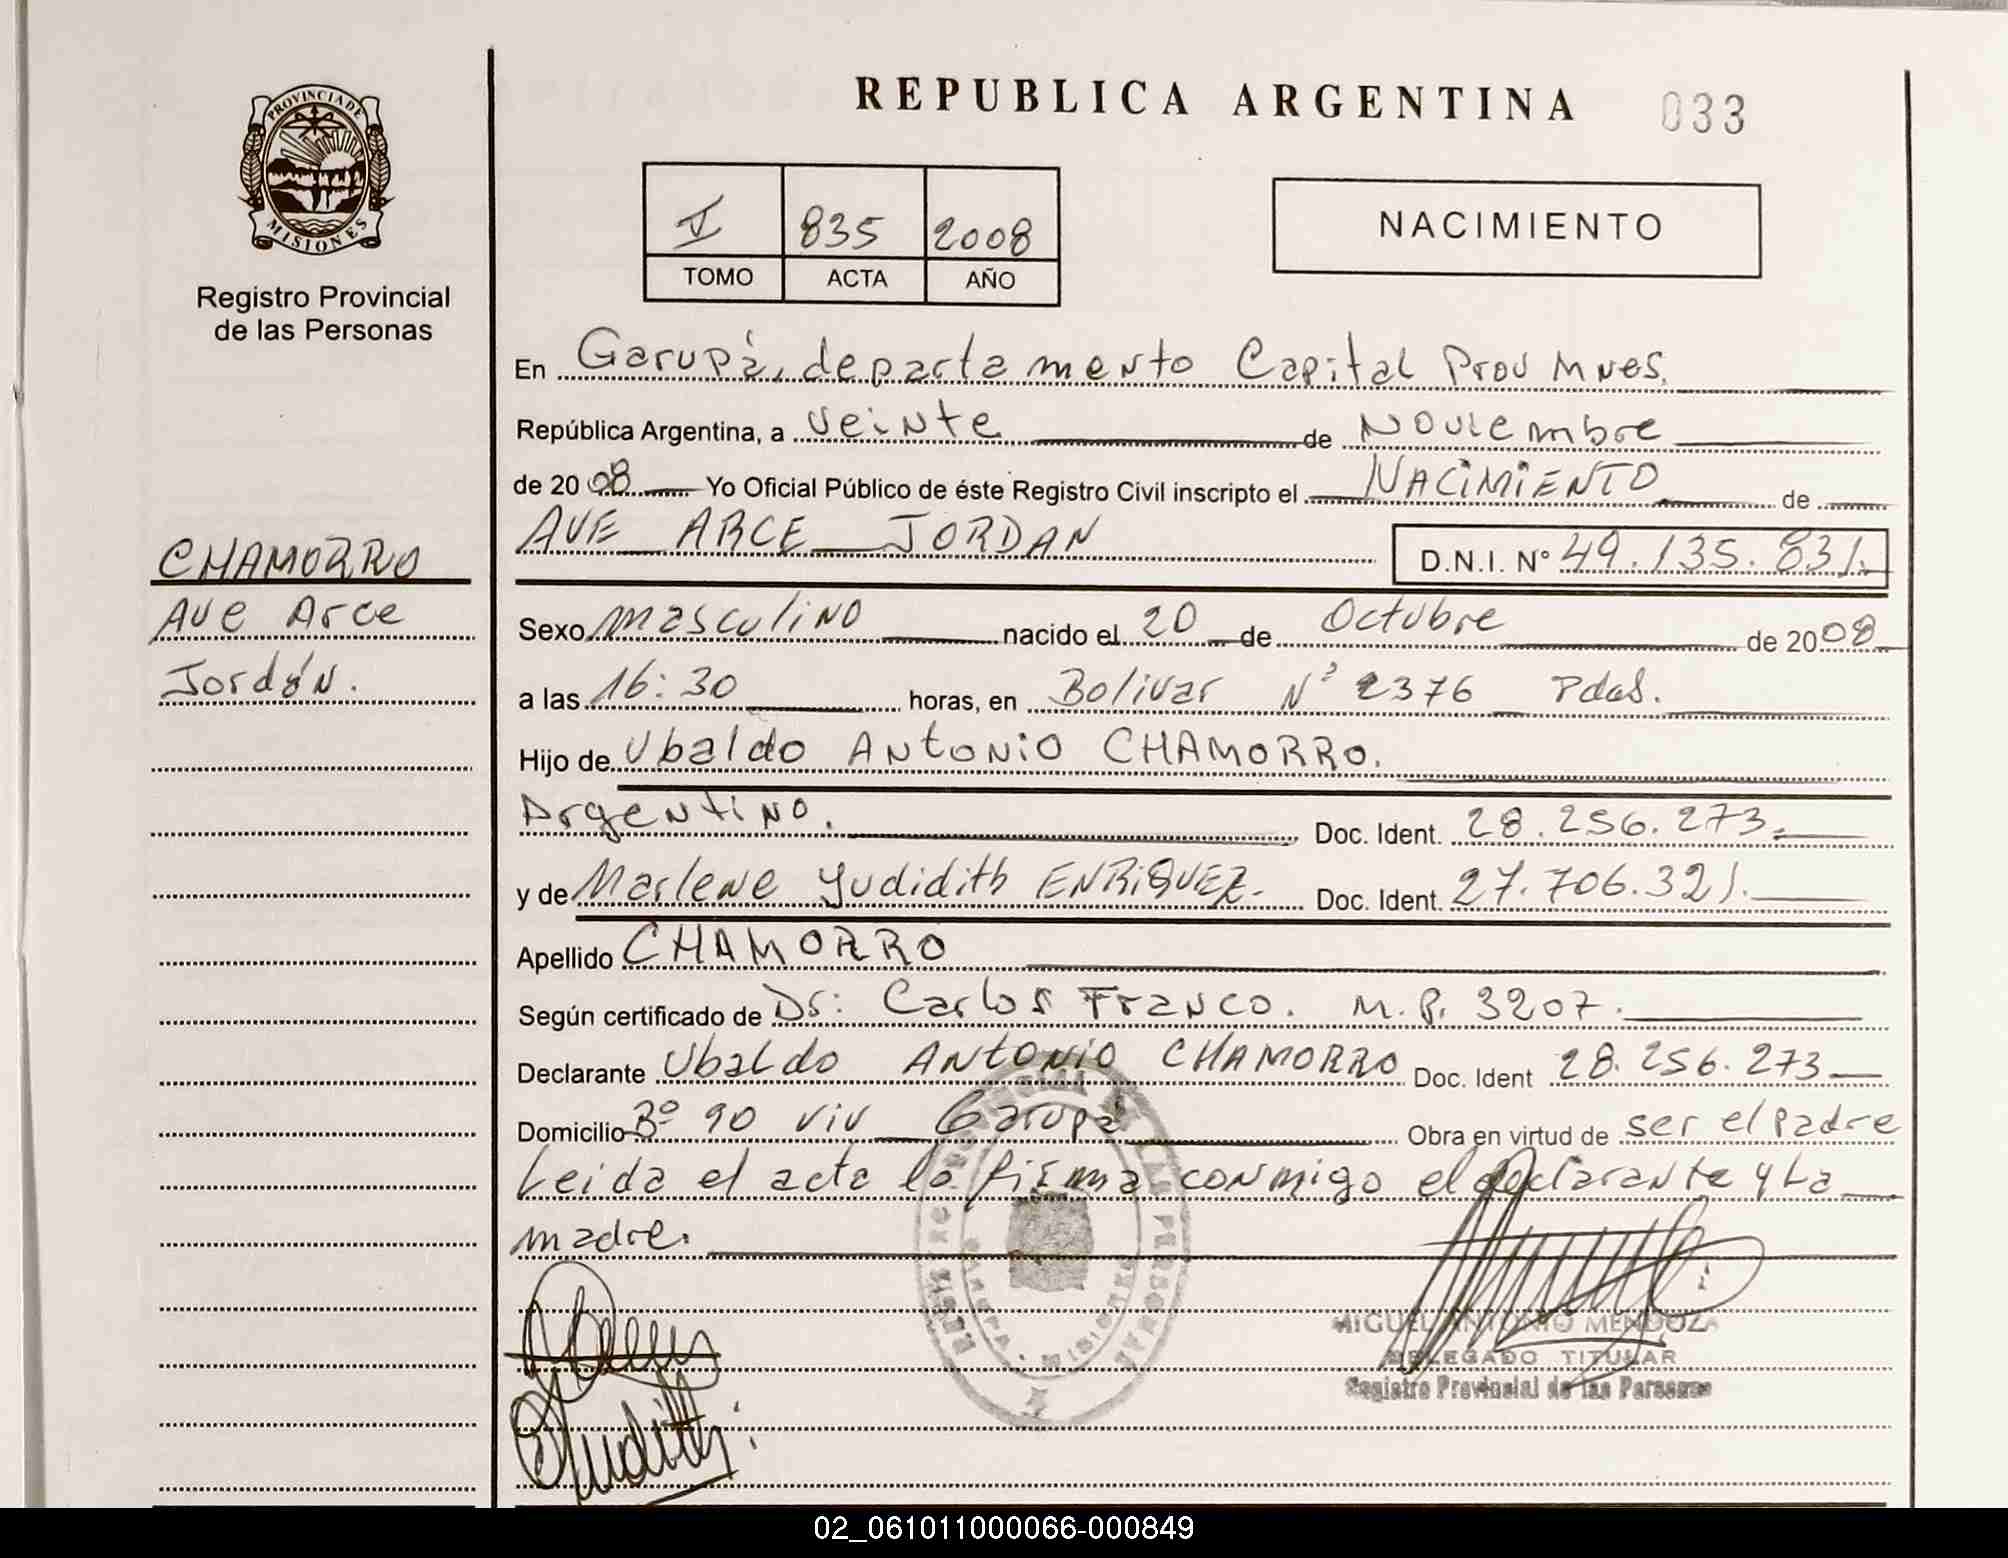 PROVINCIA DE
MISIONES
Registro Provincial
de las Personas
CHAMORRO
Ave Arce
Jordán.
REPUBLICA ARGENTINA 033
I 835 2008
TOMO ACTA AÑO
NACIMIENTO
En Garupá, departamento Capital Prov Mnes.
República Argentina, a veinte de Noviembre
de 2008 Yo Oficial Público de éste Registro Civil inscripto el NACIMIENTO de
AVE ARCE JORDAN D.N.I. Nº 49.135.831.
Sexo masculino nacido el 20 de Octubre de 2008
a las 16:30 horas, en Bolivar Nº 2376 Pdas.
Hijo de Ubaldo Antonio CHAMORRO.
Argentino. Doc. Ident. 28.256.273.
y de Marlene Yudidith ENRIQUEZ. Doc. Ident. 27.706.321.
Apellido CHAMORRO
Según certificado de Dr: Carlos Franco. M.P. 3207.
Declarante Ubaldo Antonio CHAMORRO Doc. Ident 28.256.273
Domicilio Bº 90 viv Garupá Obra en virtud de ser el padre
Leida el acta la firma conmigo el declarante y La
madre.
MIGUEL ANTONIO MENDOZA
DELEGADO TITULAR
Registro Provincial de las Personas
REGISTRO PROVINCIAL DE LAS PERSONAS
GARUPA - MISIONES
02_061011000066-000849